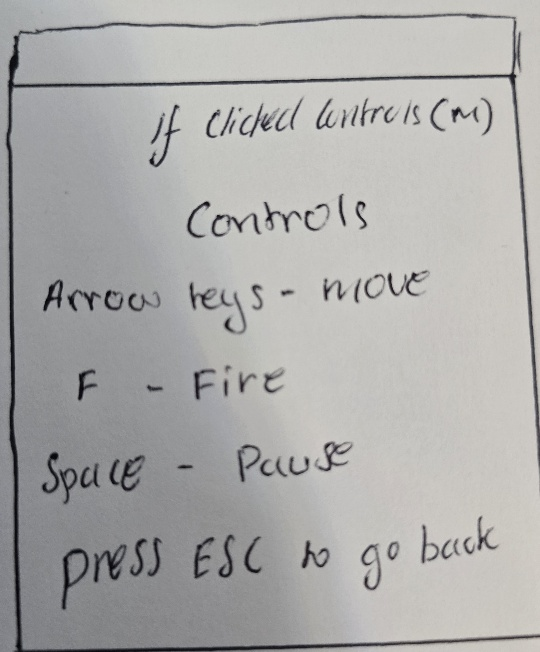 If clicked controls (M)
Controls
Arrow keys - move
F - Fire
Space - Pause
press ESC to go back